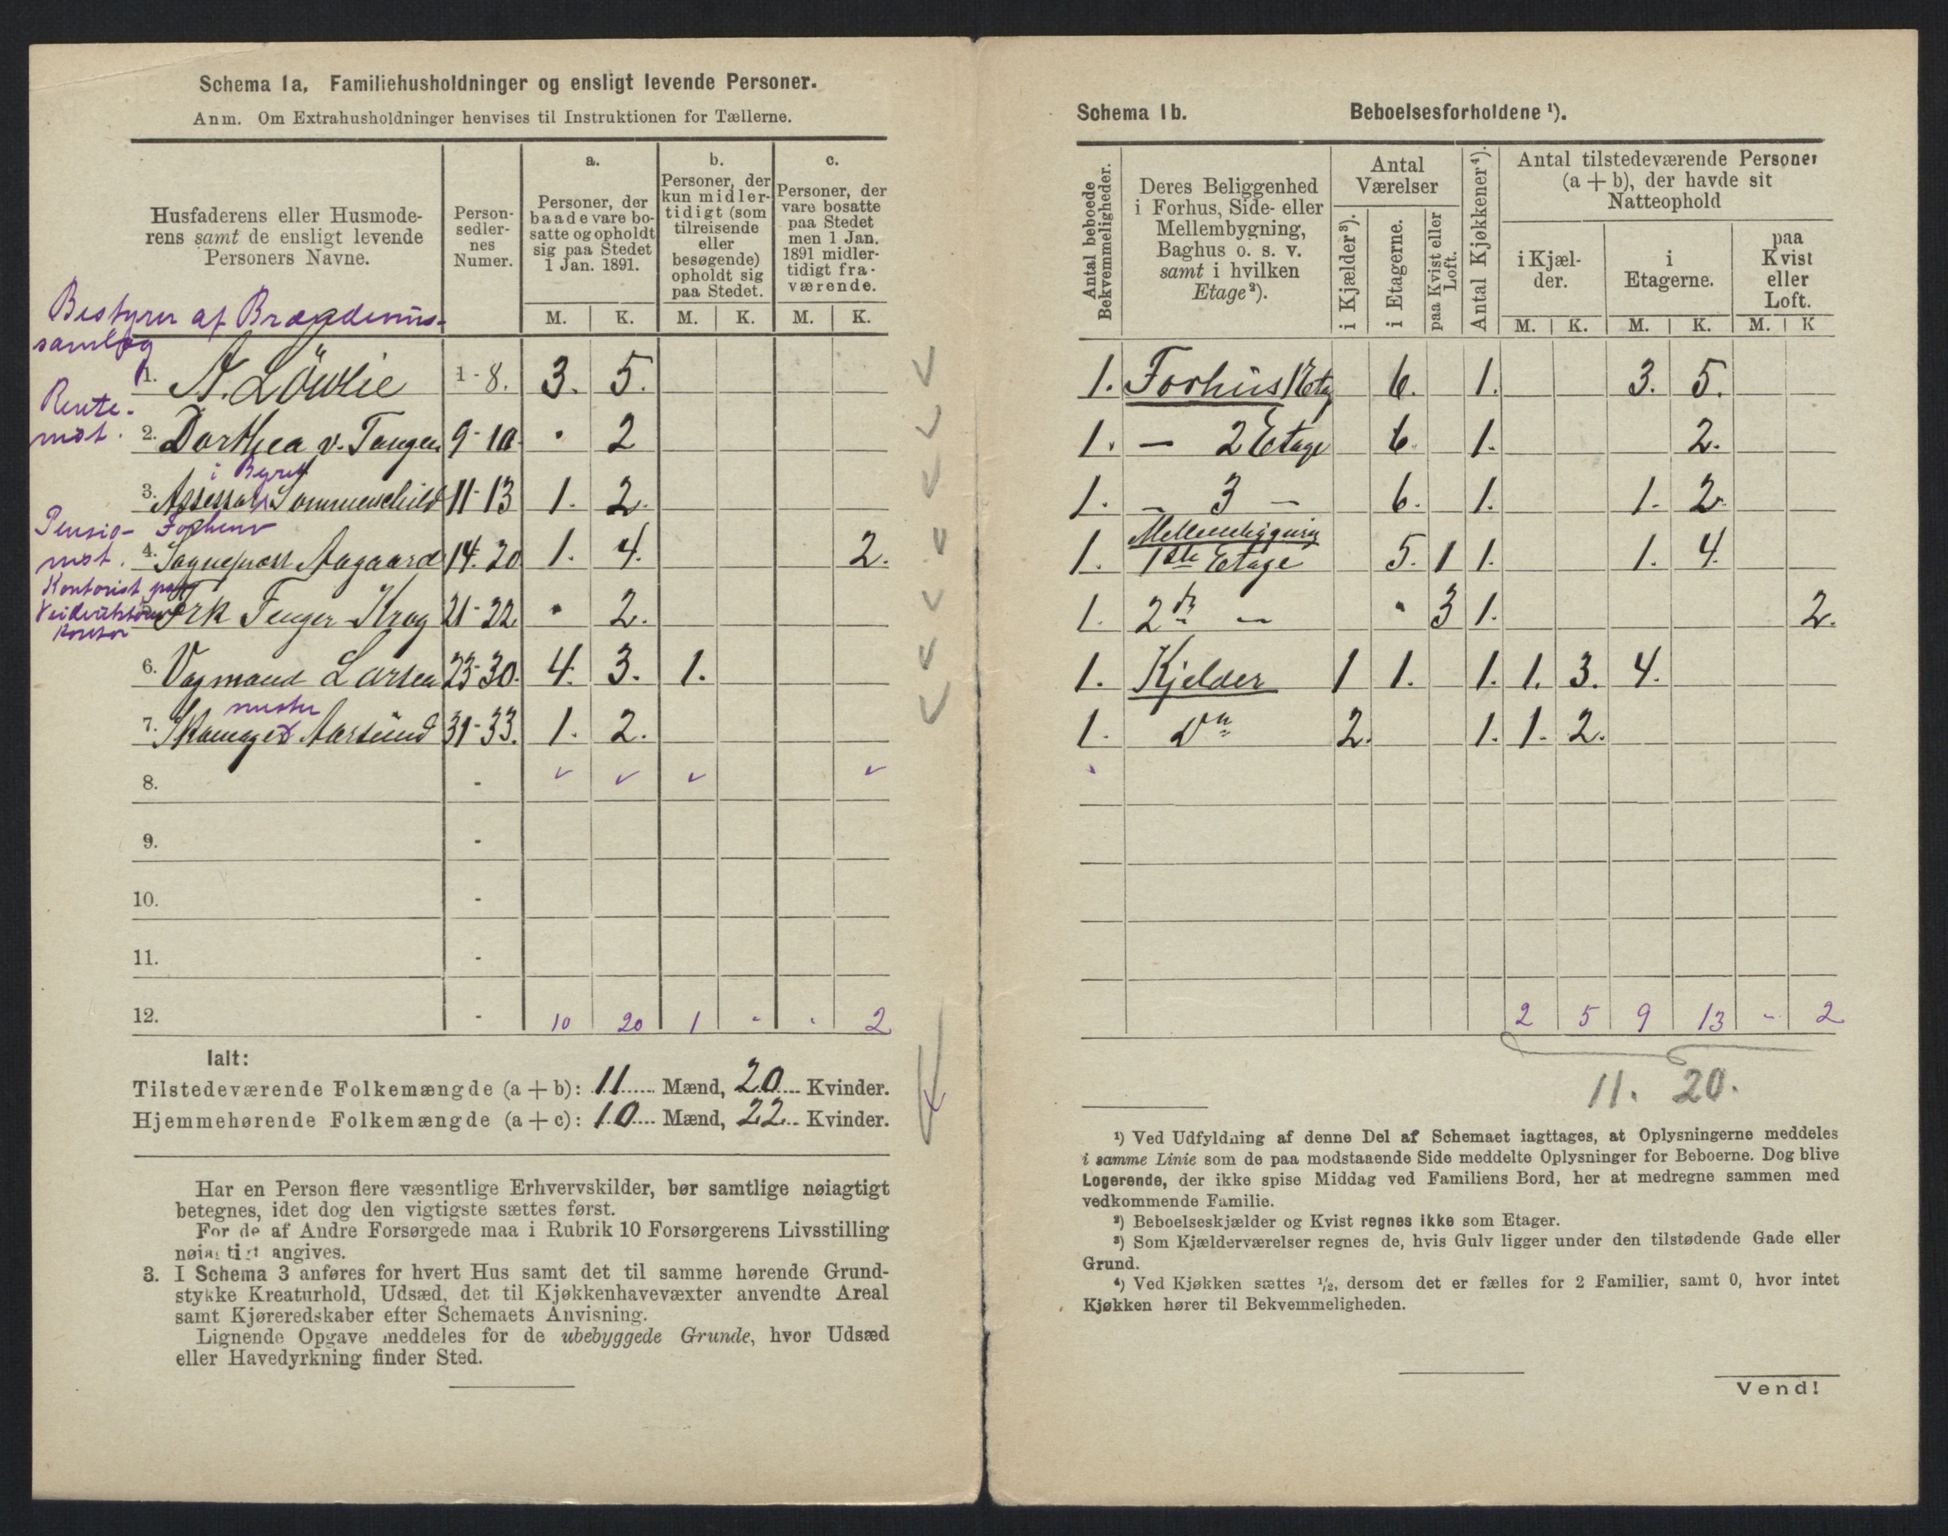 Schema 1a, Familiehusholdninger og ensligt levende Personer.
Anm. Om Extrahusholdninger henvises til Instruktionen for Tællerne.
Husfaderens eller Husmoderens samt de ensligt levende Personers Navne.
Personsedlernes Numer.
a. Personer, der baade vare bosatte og opholdt sig paa Stedet 1 Jan. 1891.
b. Personer, der kun midlertidigt (som tilreisende eller besøgende) opholdt sig paa Stedet.
c. Personer, der vare bosatte paa Stedet men 1 Jan. 1891 midlertidigt fraværende.
M. K. M. K. M. K.
Bestyrer af
1. A. Lövlie 1-8. 3. 5.
Rentenist.
2. Dorthea v. Tangen 9-10. • 2
i Byret
3. Assessor Sommerschild 11-13 1. 2.
Pensionist.
4. Sognepræst Aagaard 14-20 1. 4. 2.
Kontorist paa
Kontor
5. Frk Fenger-Krog 21-22. • 2.
6. Vognmand Larsen 23-30. 4. 3. 1.
mester
7. Skomager Aarsund 31-33. 1. 2.
8. -
9. -
10. -
11. -
12. - 10 20 1 - - 2
Ialt:
Tilstedeværende Folkemængde (a + b): 11 Mænd, 20 Kvinder.
Hjemmehørende Folkemængde (a + c): 10 Mænd, 22 Kvinder.
Har en Person flere væsentlige Erhvervskilder, bør samtlige nøiagtigt
betegnes, idet dog den vigtigste sættes først.
For de af Andre Forsørgede maa i Rubrik 10 Forsørgerens Livsstilling
nøiagtigt angives.
3. I Schema 3 anføres for hvert Hus samt det til samme hørende Grund-
stykke Kreaturhold, Udsæd, det til Kjøkkenhavevæxter anvendte Areal
samt Kjøreredskaber efter Schemaets Anvisning.
Lignende Opgave meddeles for de ubebyggede Grunde, hvor Udsæd
eller Havedyrkning finder Sted.
Schema 1b. Beboelsesforholdene ¹).
Antal beboede Bekvemmeligheder.
Deres Beliggenhed i Forhus, Side- eller Mellembygning, Baghus o. s. v. samt i hvilken Etage²).
Antal Værelser
i Kjælder³).
i Etagerne.
paa Kvist eller Loft.
Antal Kjøkkener⁴).
Antal tilstedeværende Personer (a + b), der havde sit Natteophold
i Kjælder.
i Etagerne.
paa Kvist eller Loft.
M. K. M. K. M. K
1. Forhus 1 Etg 6. 1. 3. 5.
1. — 2 Etage 6. 1. 2.
1. - 3 - 6. 1. 1. 2.
1. Mellembygning 1ste Etage 5. 1 1. 1. 4.
1. 2den — • 3 1. 2.
1. Kjelder 1 1. 1. 1. 3. 4.
1. Do 2. 1. 1. 2.
2 5 9 13 - 2
11. 20.
¹) Ved Udfyldning af denne Del af Schemaet iagttages, at Oplysningerne meddeles
i samme Linie som de paa modstaaende Side meddelte Oplysninger for Beboerne. Dog blive
Logerende, der ikke spise Middag ved Familiens Bord, her at medregne sammen med
vedkommende Familie.
²) Beboelseskjælder og Kvist regnes ikke som Etager.
³) Som Kjælderværelser regnes de, hvis Gulv ligger under den tilstødende Gade eller
Grund.
⁴) Ved Kjøkken sættes ½, dersom det er fælles for 2 Familier, samt 0, hvor intet
Kjøkken hører til Bekvemmeligheden.
Vend!